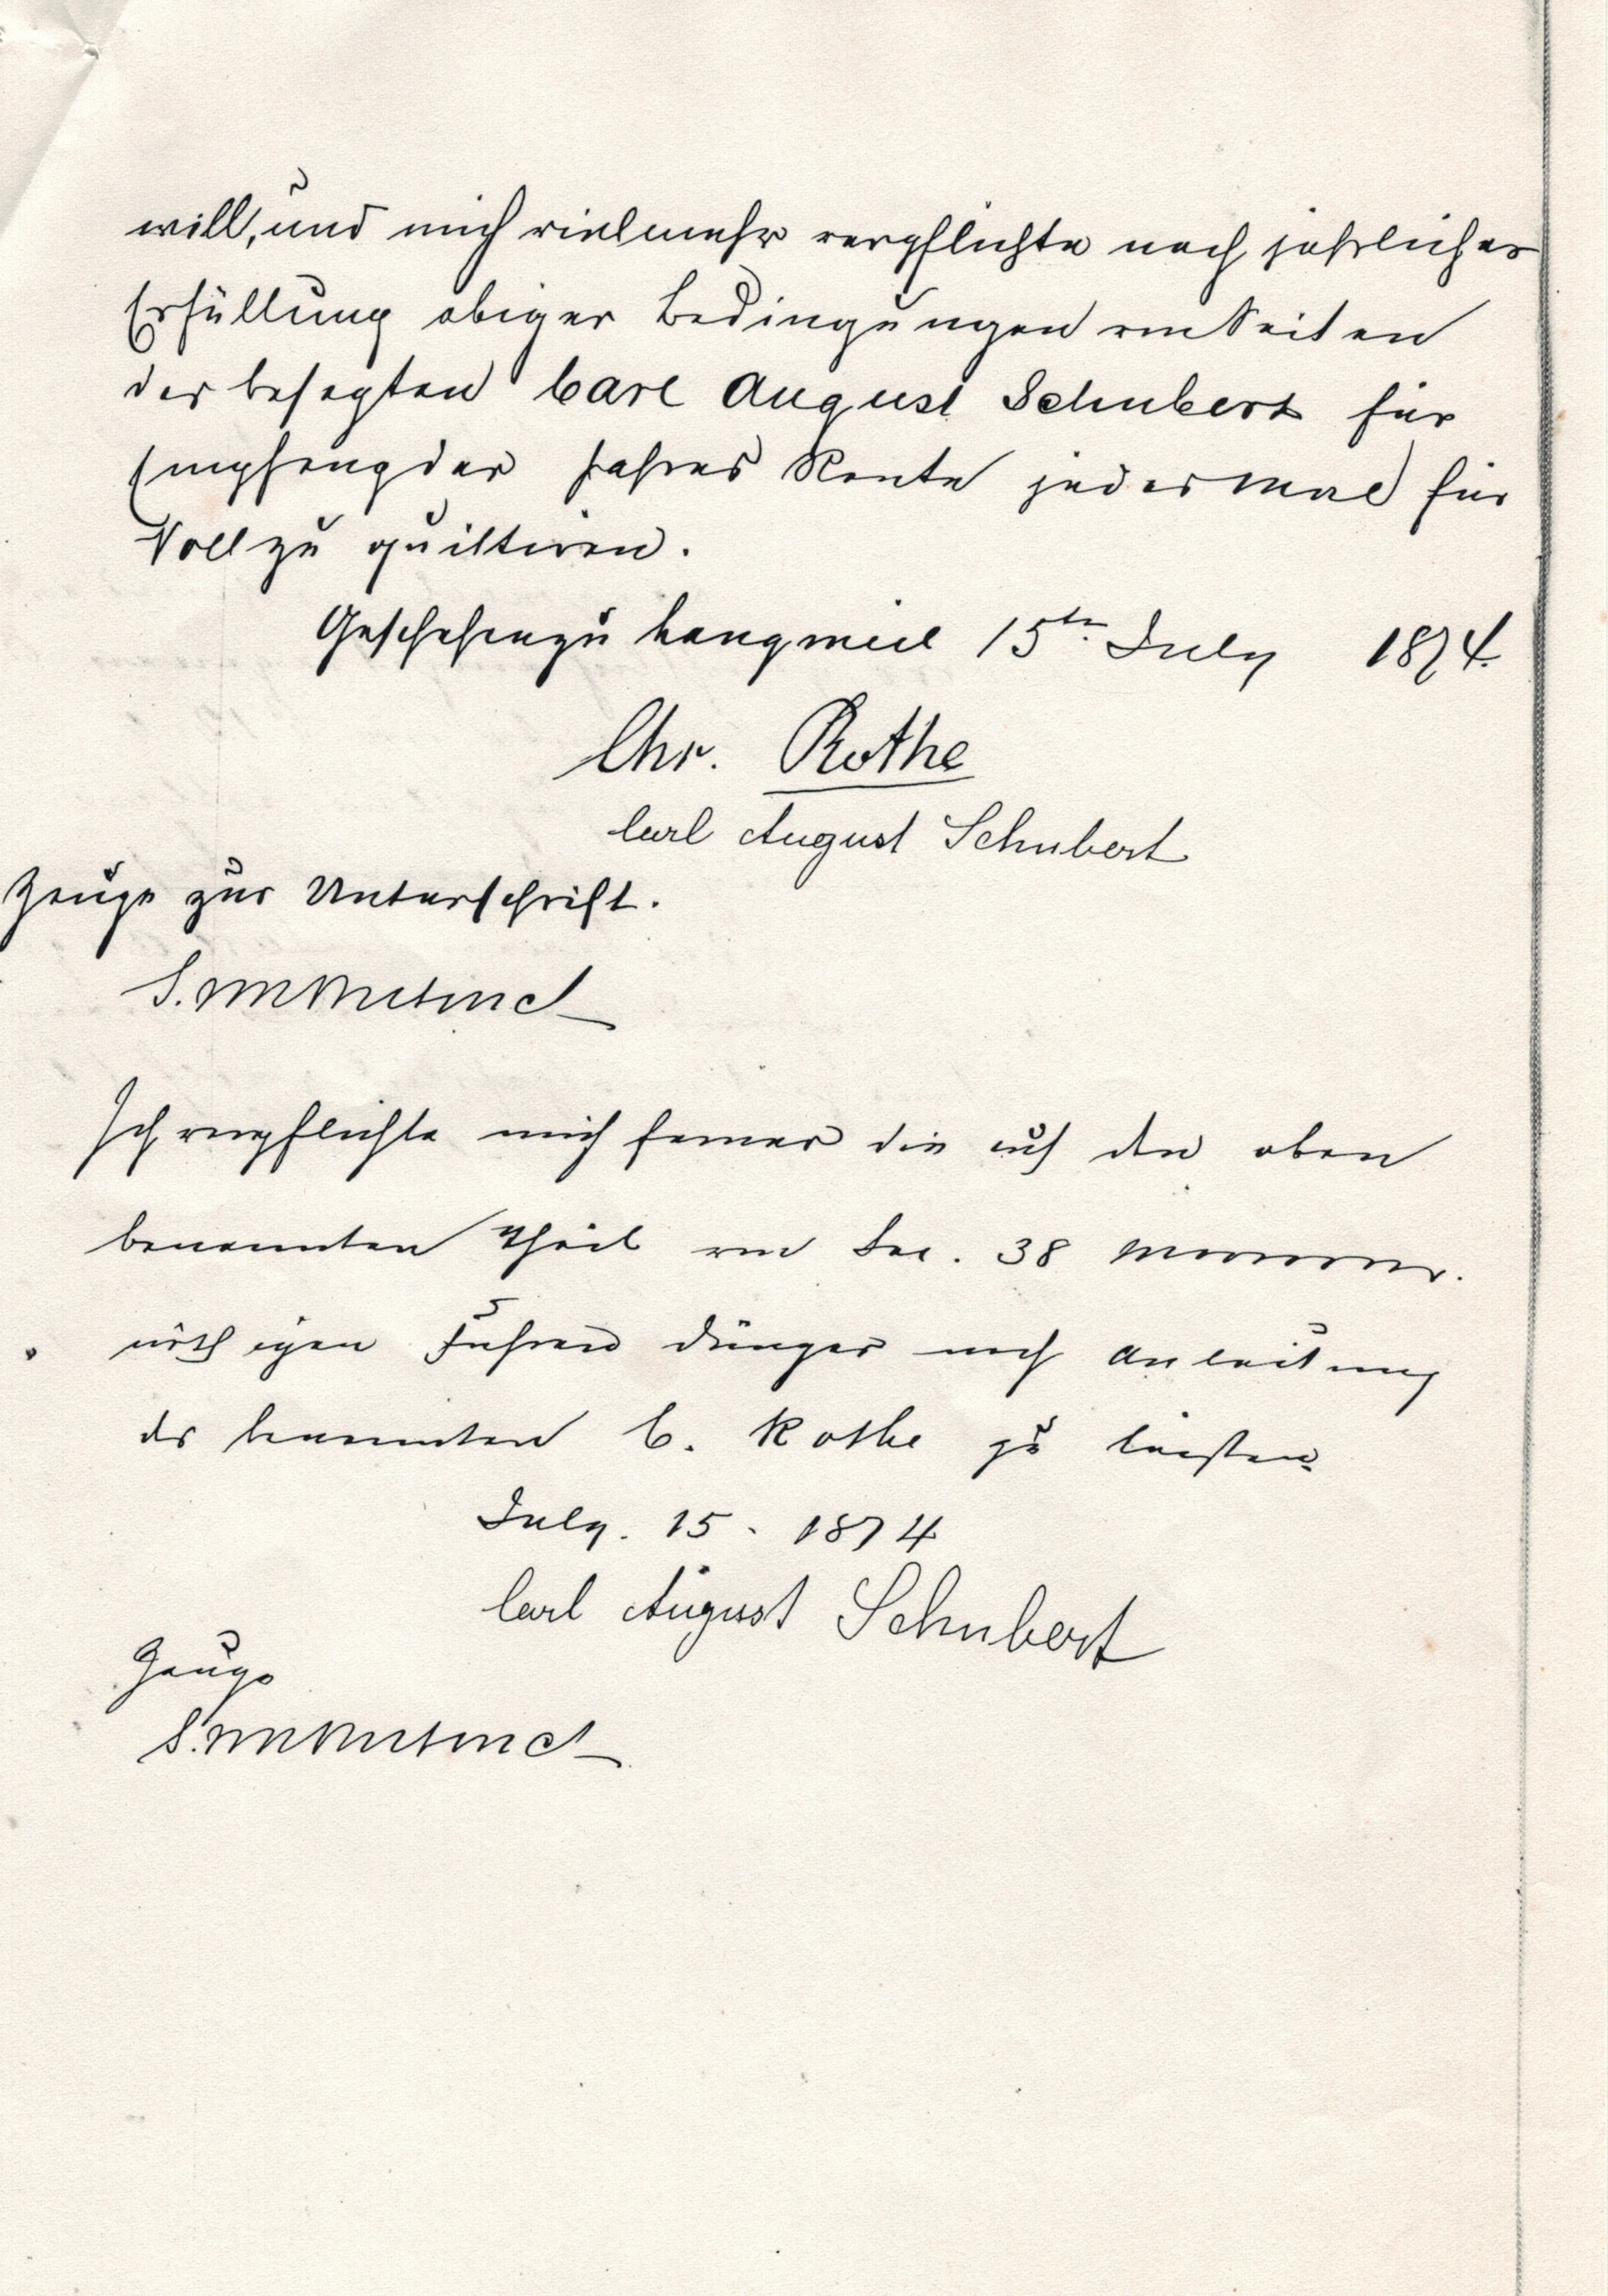 will, und mich vielmehr verpflichte nach jährlicher
Erfüllung obiger Bedingungen von Seiten
des besagten Carl August Schubert für
Empfang der Jahres Rente jedesmal für
Voll zu quittiren.
Geschehen zu 15ten July 1874.
Chr. Rothe
Carl August Schubert
Zeuge zur Unterschrift.
Ich verpflichte mich ferner die auf den oben
benannten Theil von Sec. 38
nöthigen Fuhren Dünger nach Anleitung
des benannten C. Rothe zu leisten
July. 15. 1874
Carl August Schubert
Zeuge